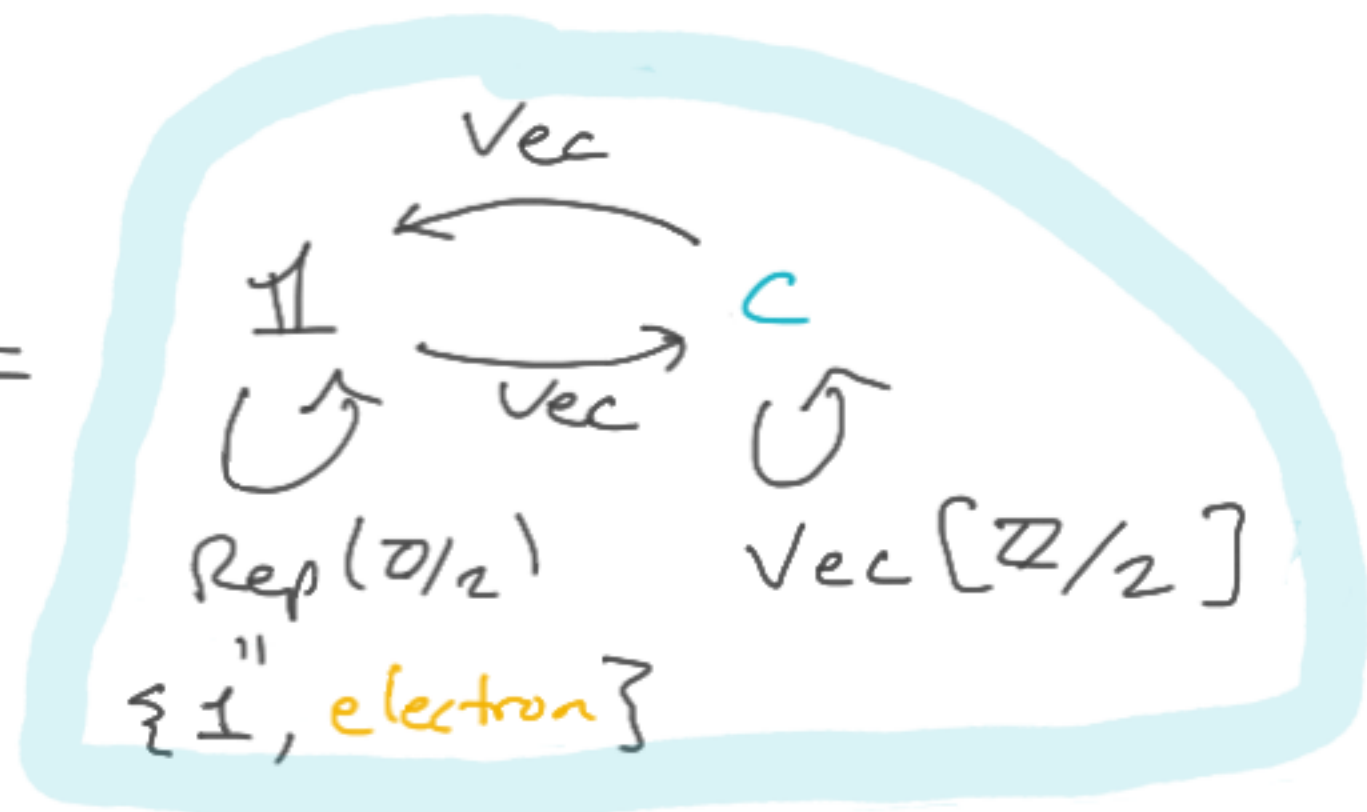 =
Vec
𝟙 C
Vec
Rep(ℤ/2) Vec[ℤ/2]
"
{1, electron}